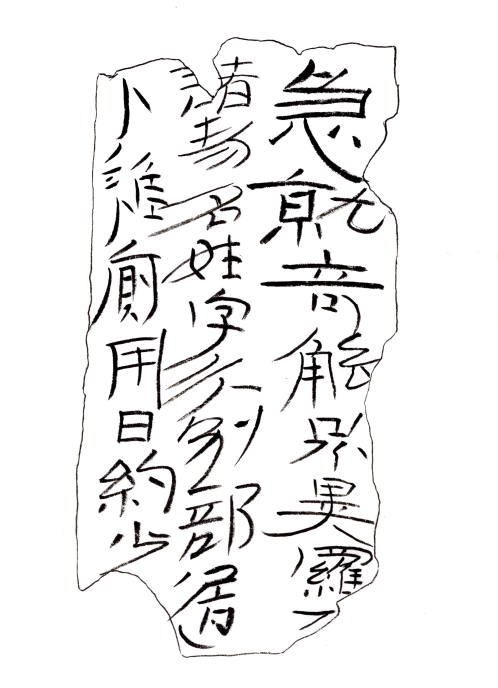 急就奇觚眾異羅
諸物名姓字分別部居
不雜廁用日約少